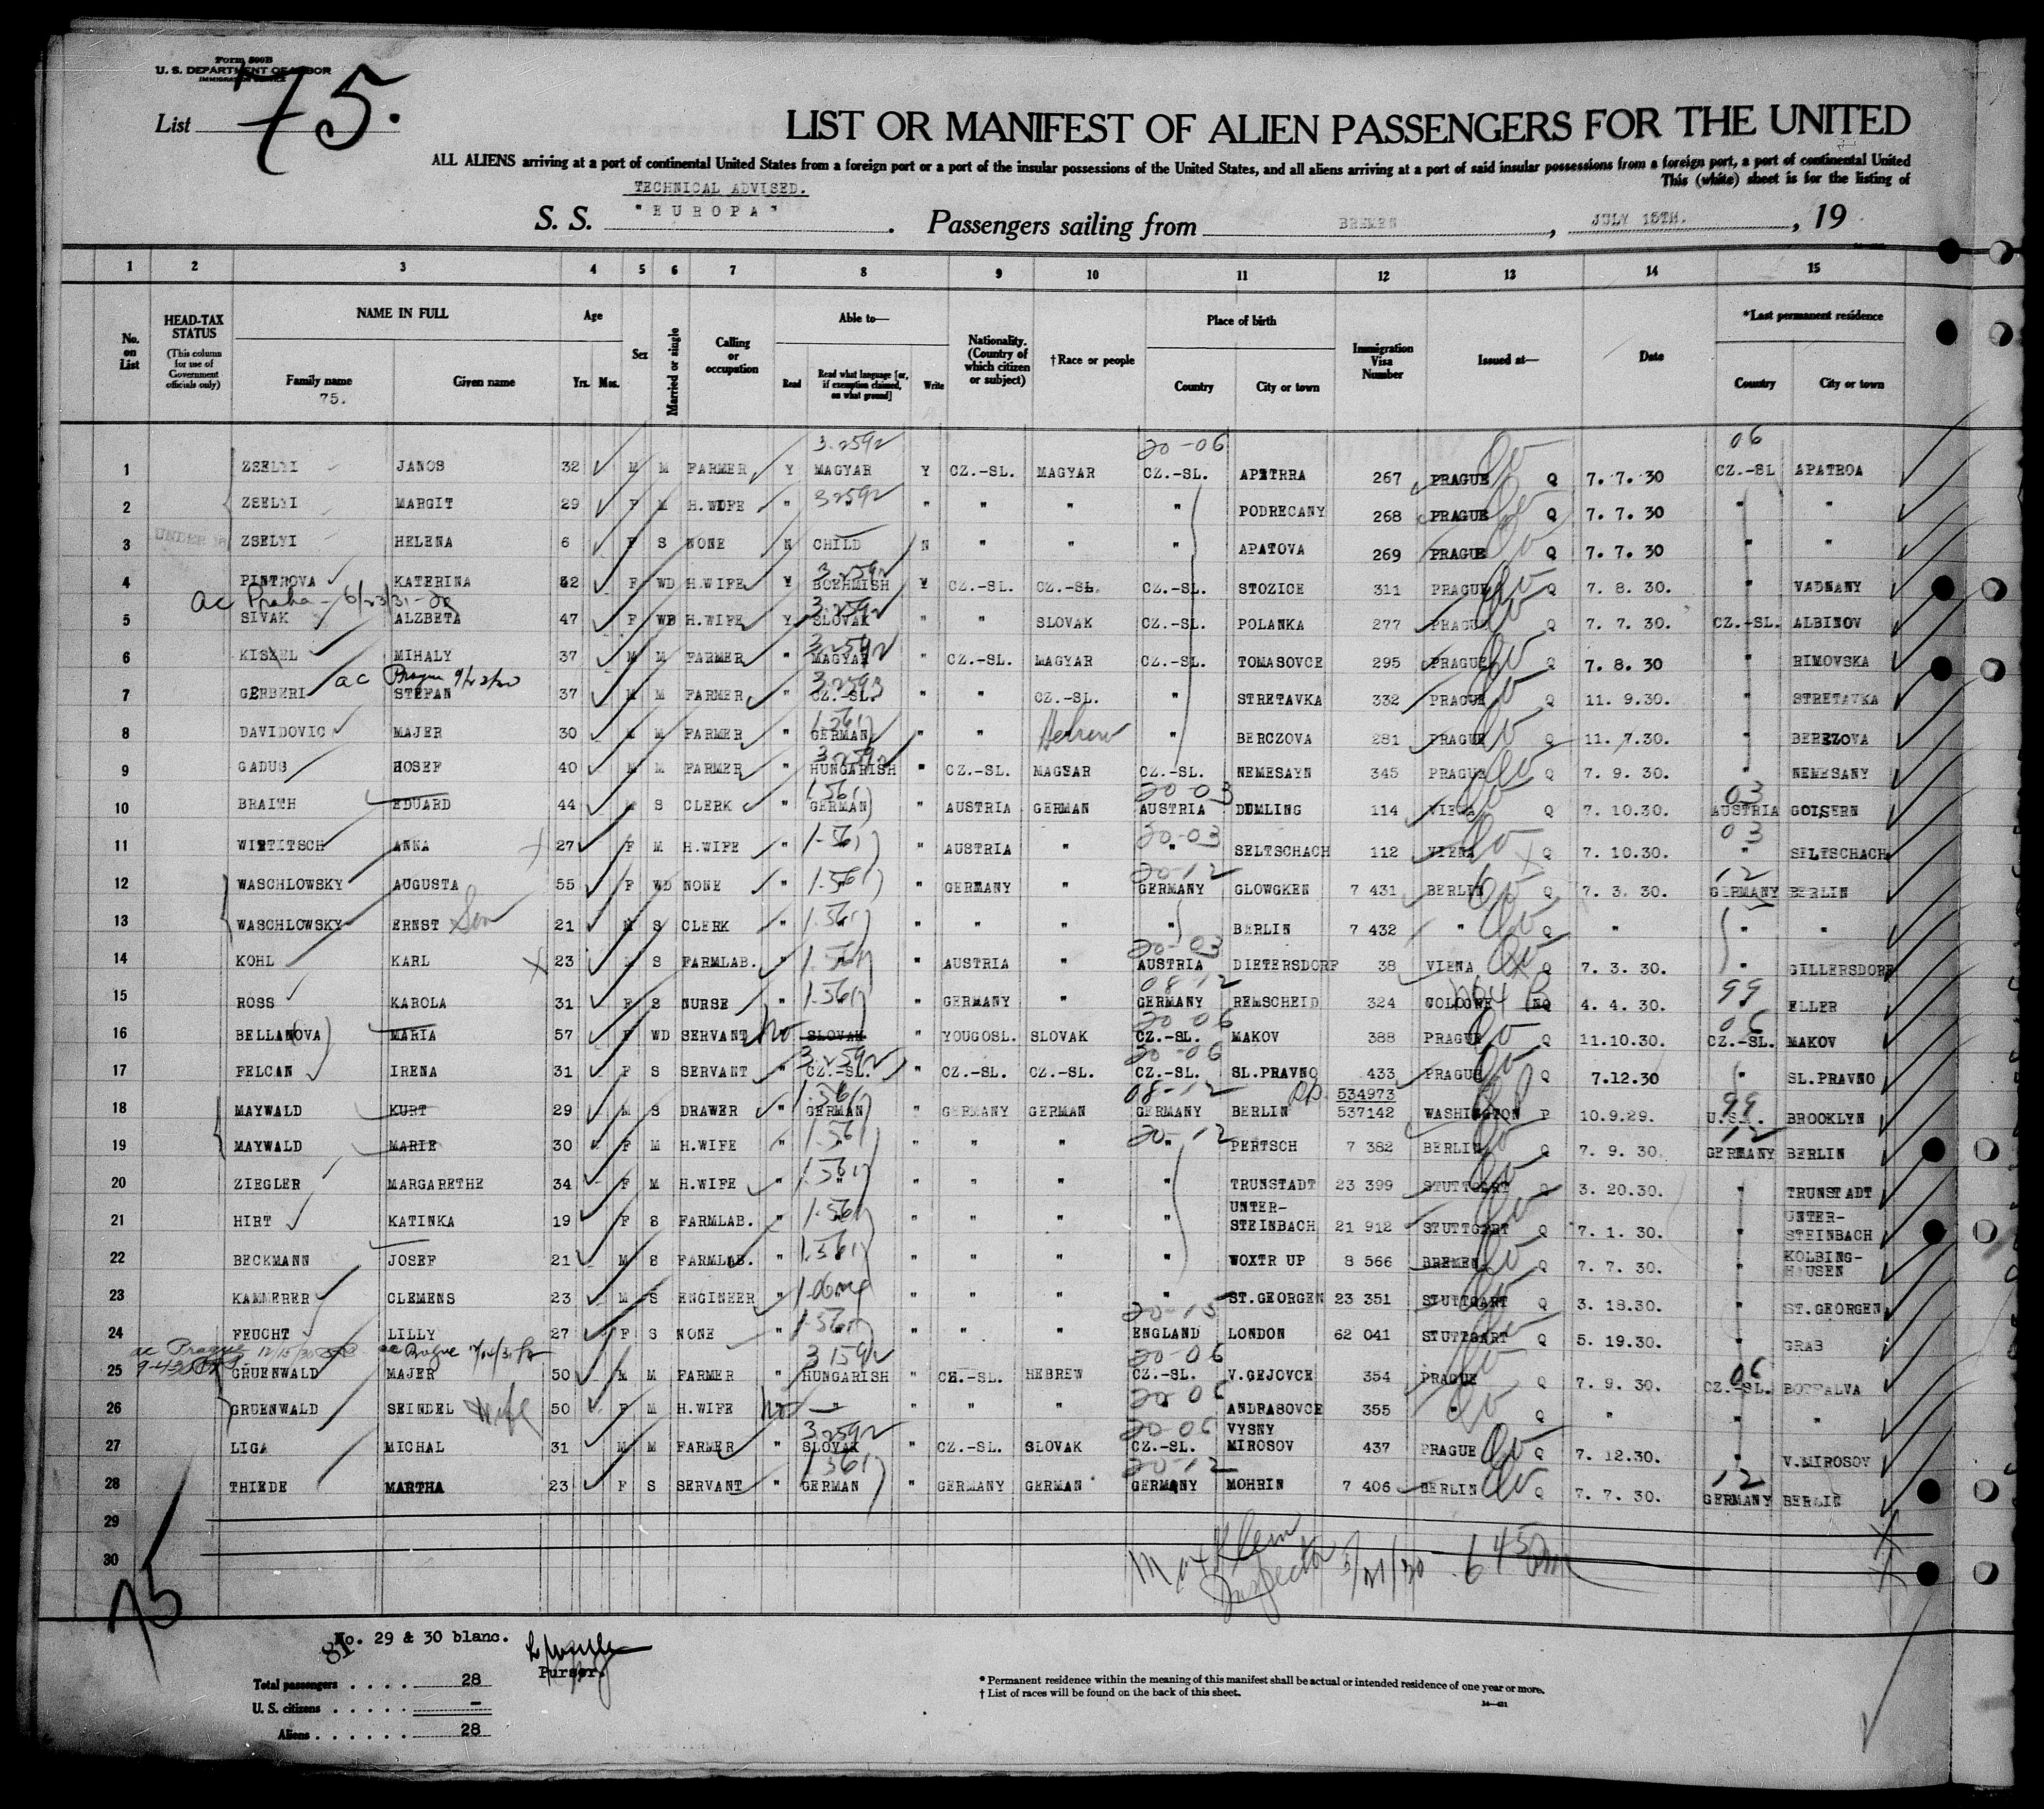 Form 500B
U. S. DEPARTMENT OF LABOR
IMMIGRATION SERVICE
List 75.
LIST OR MANIFEST OF ALIEN PASSENGERS FOR THE UNITED
ALL ALIENS arriving at a port of continental United States from a foreign port or a port of the insular possessions of the United States, and all aliens arriving at a port of said insular possessions from a foreign port, a port of continental United
This (white) sheet is for the listing of
TECHNICAL ADVISED.
S. S. "EUROPA". Passengers sailing from BREMEN, JULY 15TH., 19
1 2 3 4 5 6 7 8 9 10 11 12 13 14 15
No. on List
HEAD-TAX STATUS (This column for use of Government officials only)
NAME IN FULL
Family name
Given name
75.
Age
Yrs. Mos.
Sex
Married or single
Calling or occupation
Able to—
Read
Read what language [or, if exemption claimed, on what ground]
Write
Nationality. (Country of which citizen or subject)
†Race or people
Place of birth
Country
City or town
Immigration Visa Number
Issued at—
Date
*Last permanent residence
Country
City or town
3.2592 20-06 06
1 ZSELYI JANOS 32 M M FARMER Y MAGYAR Y CZ.-SL. MAGYAR CZ.-SL. APETRRA 267 PRAGUE Q 7. 7. 30 CZ.-SL APATROA
2 ZSELYI MARGIT 29 F M H.WIFE " 32592 " " " " PODRECANY 268 PRAGUE Q 7. 7. 30 " "
3 UNDER 16 ZSELYI HELENA 6 F S NONE N CHILD N " " " APATOVA 269 PRAGUE Q 7. 7. 30 " "
3.2592
4 PINTROVA KATERINA 52 F WD H.WIFE Y BOEHMISH Y CZ.-SL. CZ.-SL. CZ.-SL. STOZICE 311 PRAGUE Q 7. 8. 30. " VADNANY
ac Praha - 6/23/31-
3.2592
5 SIVAK ALZBETA 47 F WD H.WIFE Y SLOVAK " " SLOVAK CZ.-SL. POLANKA 277 PRAGUE Q 7. 7. 30. CZ.-SL. ALBINOV
3.2592
6 KISZEL MIHALY 37 M M FARMER " MAGYAR " CZ.-SL. MAGYAR CZ.-SL. TOMASOVCE 295 PRAGUE Q 7. 8. 30 " RIMOVSKA
ac Prague 9/22/30
3.2593
7 GERBERI STEFAN 37 M M FARMER " CZ.-SL. " " CZ.-SL. " STRETAVKA 332 PRAGUE Q 11. 9.30. " STRETAVKA
1.561
8 DAVIDOVIC MAJER 30 M M FARMER " GERMAN " " Hebrew " BERCZOVA 281 PRAGUE Q 11. 7.30. " BEREZOVA
3.2592
9 GADUS HOSEF 40 M M FARMER " HUNGARISH " CZ.-SL. MAGSAR CZ.-SL. NEMESAYN 345 PRAGUE Q 7. 9. 30. " NEMESANY
1.561 20-03 03
10 BRAITH EDUARD 44 M S CLERK " GERMAN " AUSTRIA GERMAN AUSTRIA DUMLING 114 VIENA Q 7. 10.30. AUSTRIA GOISERN
20-03 03
11 WIRTITSCH ANNA 27 F M H.WIFE " 1-561 " AUSTRIA " " SELTSCHACH 112 VIENA Q 7. 10.30. " SELTSCHACH
20-12 12
12 WASCHLOWSKY AUGUSTA 55 F WD NONE " 1.561 " GERMANY " GERMANY GLOWGKEN 7 431 BERLIN Q 7. 3. 30. GERMANY BERLIN
13 WASCHLOWSKY ERNST Son 21 M S CLERK " 1.561 " " " " BERLIN 7 432 " Q " " "
20-03
14 KOHL KARL 23 M S FARMLAB. " 1.561 " AUSTRIA " AUSTRIA DIETERSDORF 38 VIENA Q 7. 3. 30. " GILLERSDORF
08-12 99
15 ROSS KAROLA 31 F S NURSE " 1.561 " GERMANY " GERMANY REMSCHEID 324 COLOGNE NQ 4. 4. 30. ELLER
20-06 06
16 BELLANOVA MARIA 57 F WD SERVANT no SLOVAK " YOUGOSL. SLOVAK CZ.-SL. MAKOV 388 PRAGUE Q 11.10.30. CZ.-SL. MAKOV
3.2592 20-06
17 FELCAN IRENA 31 F S SERVANT " CZ.-SL. " CZ.-SL. CZ.-SL. CZ.-SL. SL.PRAVNO 433 PRAGUE Q 7.12.30 " SL.PRAVNO
1.561 08-12 534973 99
18 MAYWALD KURT 29 M S DRAWER " GERMAN " GERMANY GERMAN GERMANY BERLIN 537142 WASHINGTON P 10.9.29. U.S.. BROOKLYN
1.561 20-12 12
19 MAYWALD MARIE 30 F M H.WIFE " " " " " " PERTSCH 7 382 BERLIN Q 7. 9. 30. GERMANY BERLIN
1.561
20 ZIEGLER MARGARETHE 34 F M H.WIFE " " " " " " TRUNSTADT 23 399 STUTTGART Q 3. 20.30. " TRUNSTADT
21 HIRT KATINKA 19 F S FARMLAB. " 1.561 " " " " UNTER-STEINBACH 21 912 STUTTGART Q 7. 1. 30. " UNTER-STEINBACH
22 BECKMANN JOSEF 21 M S FARMLAB. " 1.561 " " " " WOXTR UP 8 566 BREMEN Q 7. 7. 30. " KOLBING-HAUSEN
23 KAMMERER CLEMENS 23 M S ENGINEER " " " " " ST.GEORGEN 23 351 STUTTGART Q 3. 18.30. " ST.GEORGEN
20-15
24 FEUCHT LILLY 27 F S NONE " 1-561 " " " ENGLAND LONDON 62 041 STUTTGART Q 5. 19.30. " GRAB
ac Prague 12/15/30 ac Prague
3 1592 20-06 06
25 GRUENWALD MAJER 50 M M FARMER " HUNGARISH " CZ.-SL. HEBREW CZ.-SL. V.GEJOVCE 354 PRAGUE Q 7. 9. 30. CZ.-SL. BOTFALVA
20 06
26 GRUENWALD SEINDEL Wife 50 F M H.WIFE no " " " " " ANDRASOVCE 355 " Q " " "
3.2592 20-06
27 LIGA MICHAL 31 M M FARMER " SLOVAK " CZ.-SL. SLOVAK CZ.-SL. VYSNY MIROSOV 437 PRAGUE Q 7. 12.30. " V.MIROSOV
1 561 20-12 12
28 THIEDE MARTHA 23 F S SERVANT " GERMAN " GERMANY GERMAN GERMANY MOHRIN 7 406 BERLIN Q 7. 7. 30. GERMANY BERLIN
29
30
Klein
Inspector /21/30 6 45 Pm
75
81
No. 29 & 30 blanc.
Purser.
Total passengers . . . . 28
U. S. citizens . . . . . –
Aliens . . . . . . 28
* Permanent residence within the meaning of this manifest shall be actual or intended residence of one year or more.
† List of races will be found on the back of this sheet.